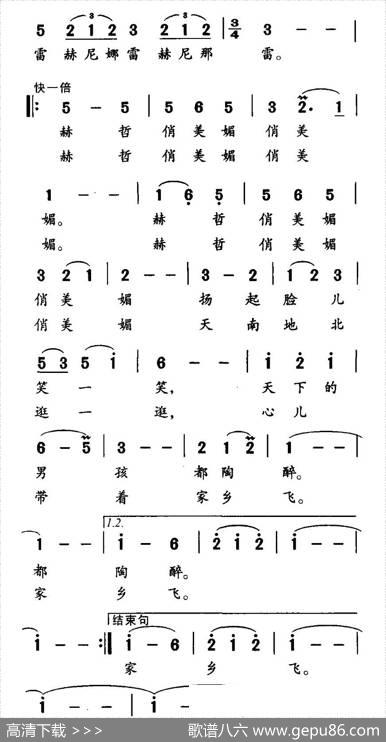 5 2 1 2 3 2 1 2 | 3/4 3 - - |
雷 赫尼娜雷 赫尼那 雷。
快一倍
‖: 5 - 5 | 5 6 5 | 3 2. 1 |
赫 哲 俏美媚 俏 美
赫 哲 俏美媚 俏 美
1 - - | 1 6 5 | 5 6 5 |
媚。 赫 哲 俏美媚
媚。 赫 哲 俏美媚
3 2 1 | 2 - - | 3 - 2 | 1 2 3 |
俏美 媚 扬 起 脸 儿
俏美 媚 天 南 地 北
5 3 5 i | 6 - - | i 2 i |
笑 一 笑, 天下的
逛 一 逛, 心 儿
6 - 5 | 3 - - | 2 1 2 | 1 - - |
男 孩 都陶 醉。
带 着 家乡 飞。
1.2.
1 - - | i - 6 | 2 i 2 | i - - |
都 陶 醉。
家 乡 飞。
结束句
i - - :‖ i - 6 | 2 i 2 | i - - |
家 乡 飞。
i - - | i - -
高清下载 >>> 歌谱八六 www.gepu86.com